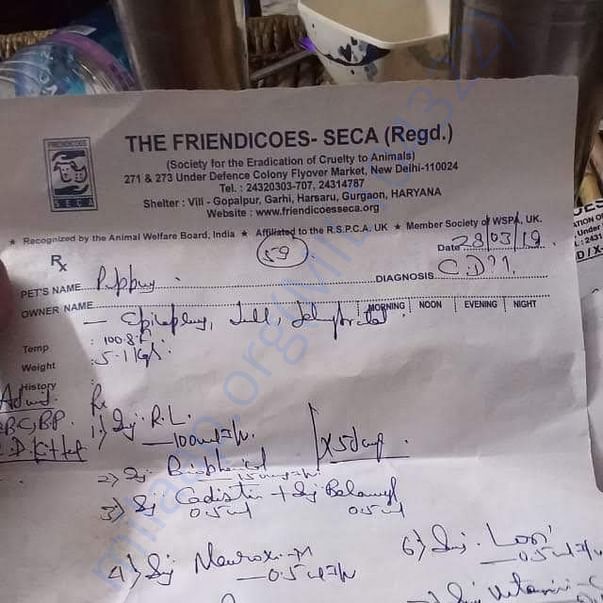 FRIENDICOES
SECA
THE FRIENDICOES- SECA (Regd.)
(Society for the Eradication of Cruelty to Animals)
271 & 273 Under Defence Colony Flyover Market, New Delhi-110024
Tel. : 24320303-707, 24314787
Shelter : Vill - Gopalpur, Garhi, Harsaru, Gurgaon, HARYANA
Website : www.friendicoesseca.org
★ Recognized by the Animal Welfare Board, India ★ Affiliated to the R.S.P.C.A. UK ★ Member Society of WSPA, UK.
59
Date 28/03/19
Rx
PET'S NAME Puppy DIAGNOSIS C.D??
OWNER NAME MORNING NOON EVENING NIGHT
- Epilepsy, Dull, Dehydrated
Temp : 100.8
Weight : 5.1 Kg
History :
Advised
BC, BP
Rx
1) Inj. R.L.
100ml I/V
x 5 days
2) Inj
3) Inj Cadistin + Inj Belamyl
0.5ml 0.5ml
4) Inj Neuroxin-M
0.5ml I/V
6) Inj.
0.5ml I/V
Inj Vitamin-C
milaap.org